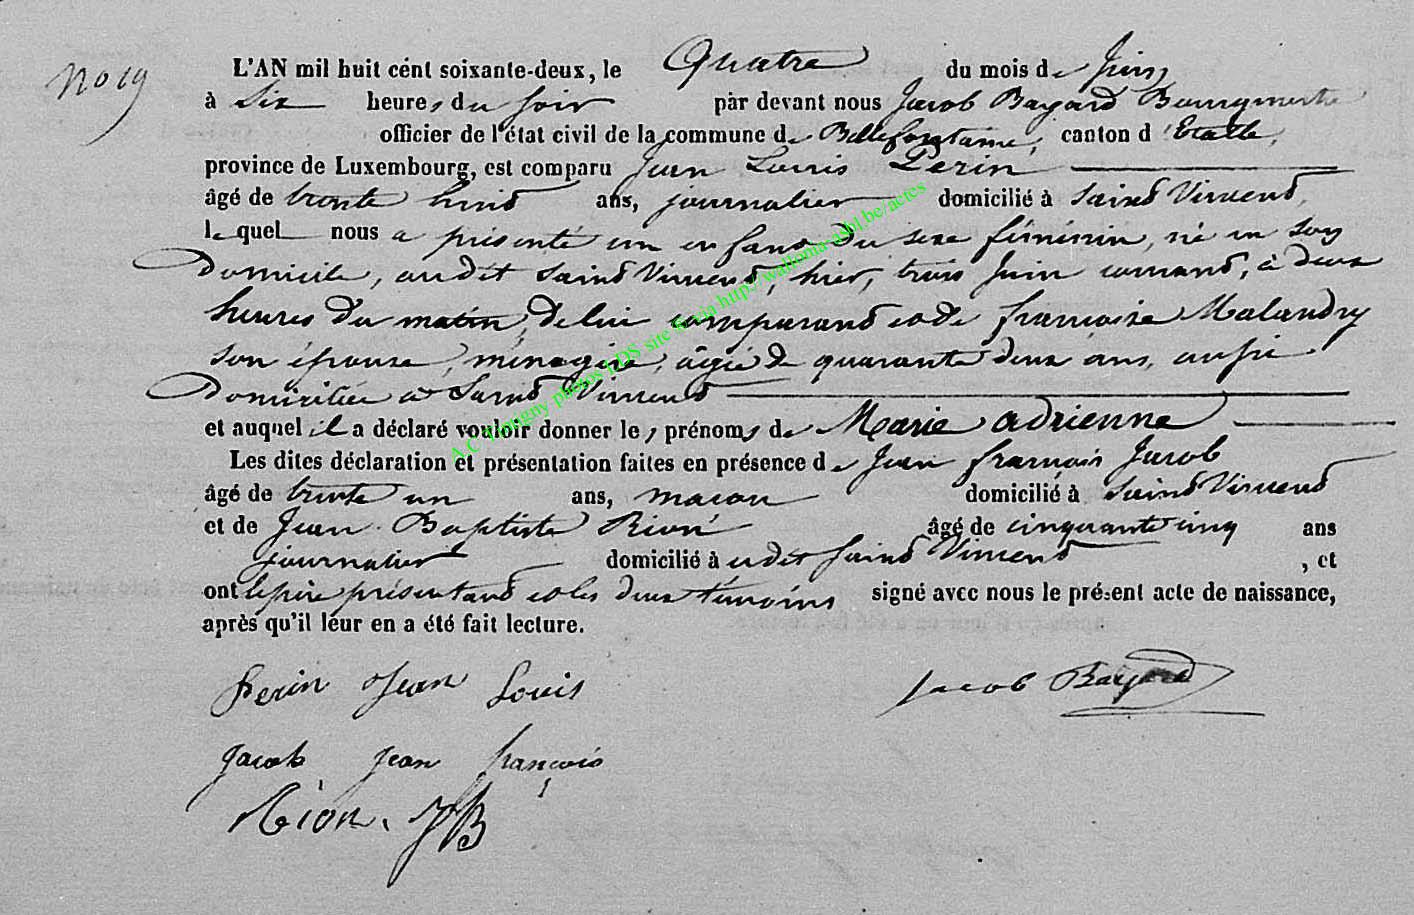 No 19
L'AN mil huit cent soixante-deux, le Quatre du mois de Juin
à Six heures du soir par devant nous Jacob Bayard Bourgmestre
officier de l'état civil de la commune de Bellefontaine, canton d'Etalle,
province de Luxembourg, est comparu Jean Louis Perin
âgé de trente huit ans, journalier domicilié à Saint Vincent,
lequel nous a présenté un enfant du sexe féminin, né en son
Domicile, audit Saint Vincent, hier, trois Juin courant, à deux
heures du matin, de lui comparant et de francoise Malandry
son épouse, ménagère, âgée de quarante deux ans, aussi
Domiciliée à Saint Vincent
et auquel il a déclaré vouloir donner les prénoms de Marie Adrienne
Les dites déclaration et présentation faites en présence de Jean francois Jacob
âgé de trente un ans, macon domicilié à Saint Vincent
et de Jean Baptiste Rion âgé de cinquante cinq ans
journalier domicilié à udit Saint Vincent, et
ont le père présentant et les deux témoins signé avec nous le présent acte de naissance,
après qu'il leur en a été fait lecture.
Perin Jean Louis
Jacob Bayard
Jacob Jean françois
Rion. JB
A.C. Tintigny photos LDS site & via http://wallonia-asbl.be/actes